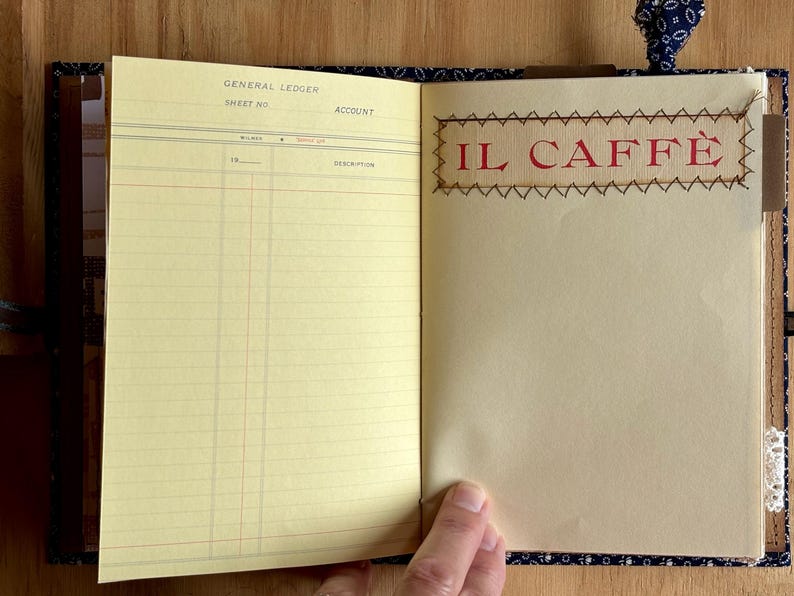 GENERAL LEDGER
SHEET NO. ACCOUNT
WILMER
19 DESCRIPTION
IL CAFFÈ